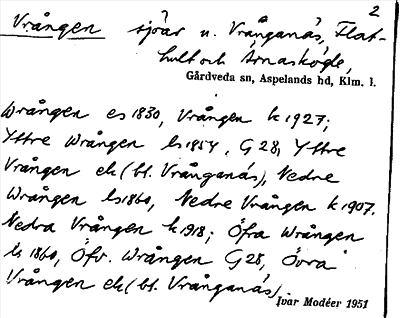 2
Vrången sjöar u. Vrånganäs, Flat-
hult och Årnaskögle,
Gårdveda sn, Aspelands hd, Klm. l.
Wrången es 1830, Vrången k 1927;
Yttre Wrången ls 1854, G 28, Yttre
Vrången ek (bt. Vrånganäs), Nedre
Wrången ls 1860, Nedre Vrången k 1907.
Nedra Vrången k 1918; Öfra Wrången
ls 1860, Öfv. Wrången G 28, Övra
Vrången ek (bt. Vrånganäs).
Ivar Modéer 1951